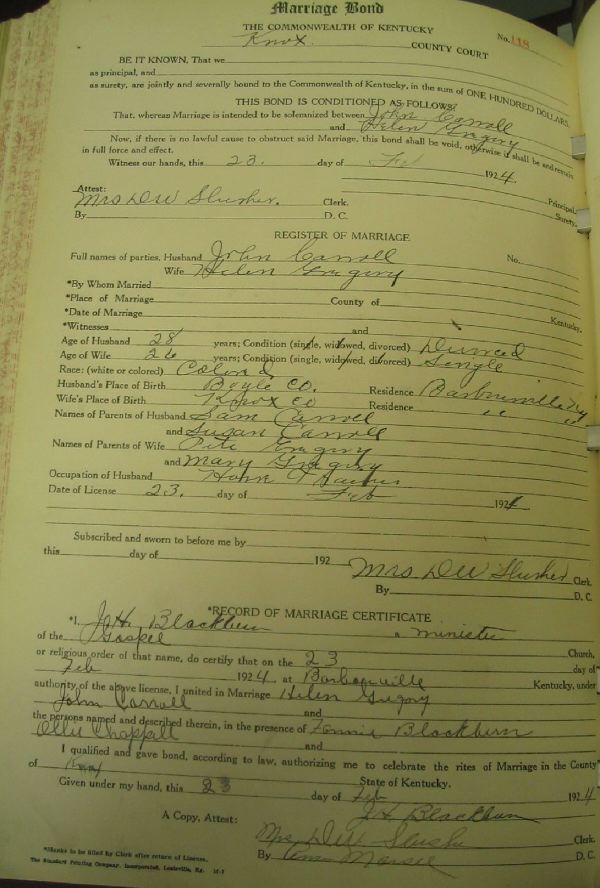 Marriage Bond
THE COMMONWEALTH OF KENTUCKY
No. 118
Knox COUNTY COURT
BE IT KNOWN, That we
as principal, and
as surety, are jointly and severally bound to the Commonwealth of Kentucky, in the sum of ONE HUNDRED DOLLARS.
THIS BOND IS CONDITIONED AS FOLLOWS:
That, whereas Marriage is intended to be solemnized between John Carroll
and Helen Gregory
Now, if there is no lawful cause to obstruct said Marriage, this bond shall be void, otherwise it shall be and remain
in full force and effect.
Witness our hands, this 23. day of Feb 1924.
Principal.
Attest: Surety.
Mrs D W Slusher. Clerk.
By D. C.
REGISTER OF MARRIAGE
Full names of parties, Husband John Carroll No.
Wife Helen Gregory
*By Whom Married
*Place of Marriage County of Kentucky.
*Date of Marriage
*Witnesses and
Age of Husband 28 years; Condition (single, widowed, divorced) Divorced
Age of Wife 26 years; Condition (single, widowed, divorced) Single
Race: (white or colored) Colored
Husband's Place of Birth Boyle Co. Residence Barbourville Ky
Wife's Place of Birth Knox Co Residence " "
Names of Parents of Husband Sam Carroll
and Susan Carroll
Names of Parents of Wife Pete Gregory
and Mary Gregory
Occupation of Husband Horse
Date of License 23. day of Feb 1924
Subscribed and sworn to before me by
this day of 192
Mrs D W Slusher Clerk.
By D. C.
*RECORD OF MARRIAGE CERTIFICATE
*I, J. H. Blackburn a minister
of the Gospel Church,
or religious order of that name, do certify that on the 23 day of
Feb 1924, at Barbourville Kentucky, under
authority of the above license, I united in Marriage Helen Gregory
John Carroll and
the persons named and described therein, in the presence of Fannie Blackburn
Ollie Chappell and
I qualified and gave bond, according to law, authorizing me to celebrate the rites of Marriage in the County
of Knox State of Kentucky.
Given under my hand, this 23 day of Feb 1924
J H Blackburn
A Copy, Attest: Mrs D W Slusher Clerk.
By D. C.
*Blanks to be filled by Clerk after return of License.
The Standard Printing Company, Incorporated, Louisville, Ky.